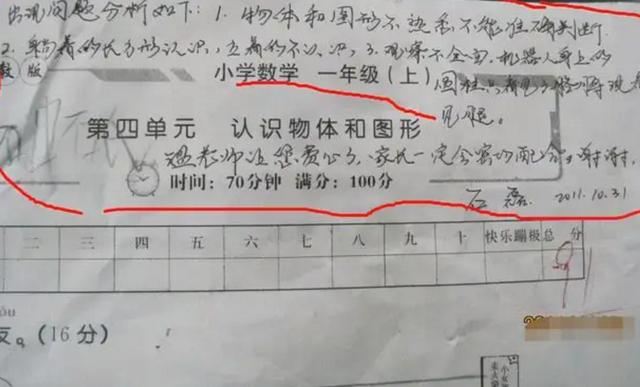 出现问题分析如下：1. 物体和图形不熟悉不能准确判断
2. 躺着的长方形认识，立着的不认识，3. 观察不全面，机器人身上的
数 版
小学数学 一年级（上）
圆柱只看见了
见腿。
第四单元 认识物体和图形
老师让您费心了，家长一定会密切配合，谢谢，
时间：70分钟 满分：100分
石磊 2011.10.31
二 三 四 五 六 七 八 九 十 快乐蹦极 总分
91
友。（16分）